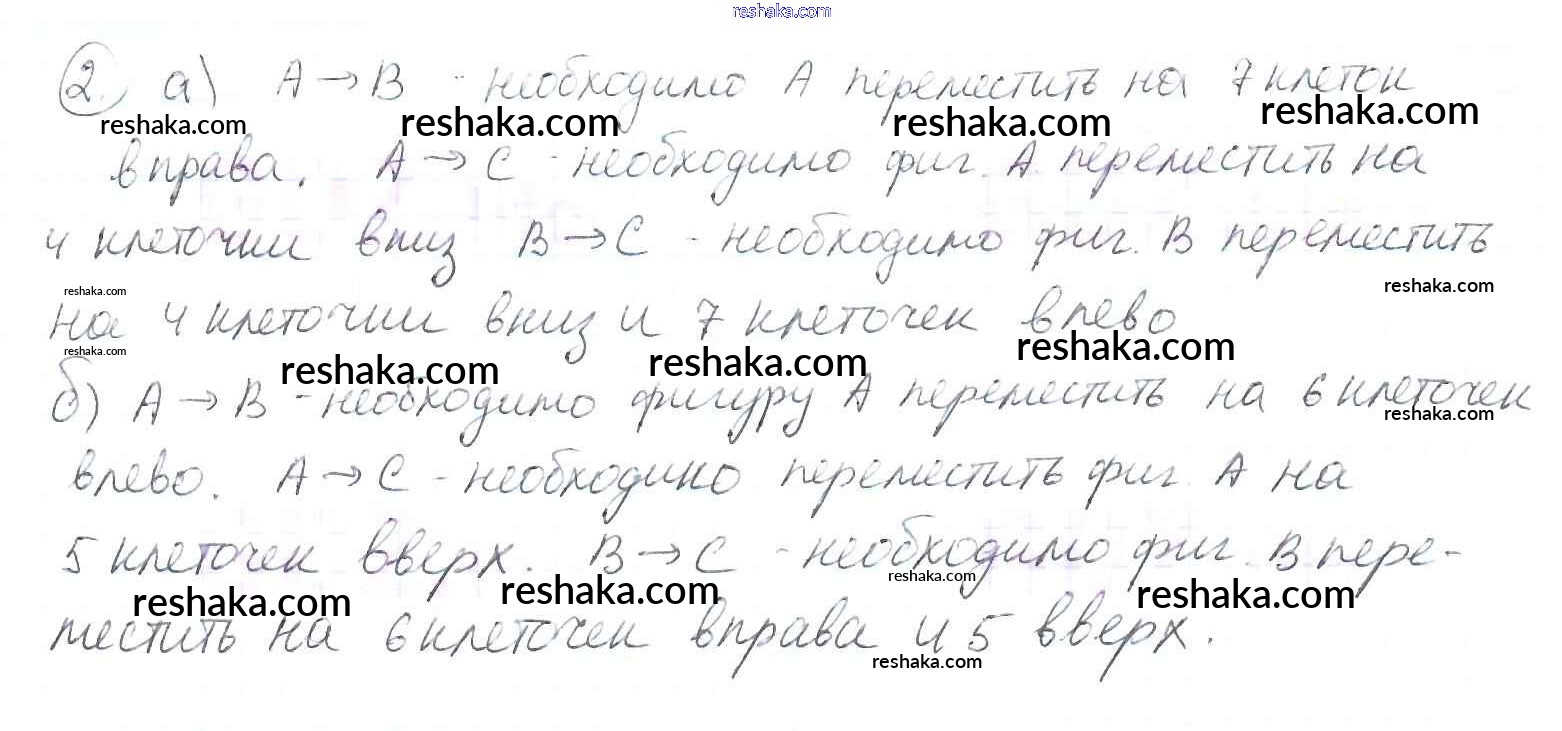 reshaka.com
2. а) А → В - необходимо А переместить на 7 клеток
reshaka.com reshaka.com reshaka.com reshaka.com
вправа. А → С - необходимо фиг. А переместить на
4 клеточки вниз В → С - необходимо фиг. В переместить
reshaka.com reshaka.com
на 4 клеточки вниз и 7 клеточек влево
reshaka.com reshaka.com reshaka.com reshaka.com
б) А → В - необходимо фигуру А переместить на 6 клеточек
reshaka.com
влево. А → С - необходимо переместить фиг. А на
5 клеточек вверх. В → С - необходимо фиг. В пере-
reshaka.com reshaka.com reshaka.com reshaka.com
местить на 6 клеточек вправа и 5 вверх.
reshaka.com